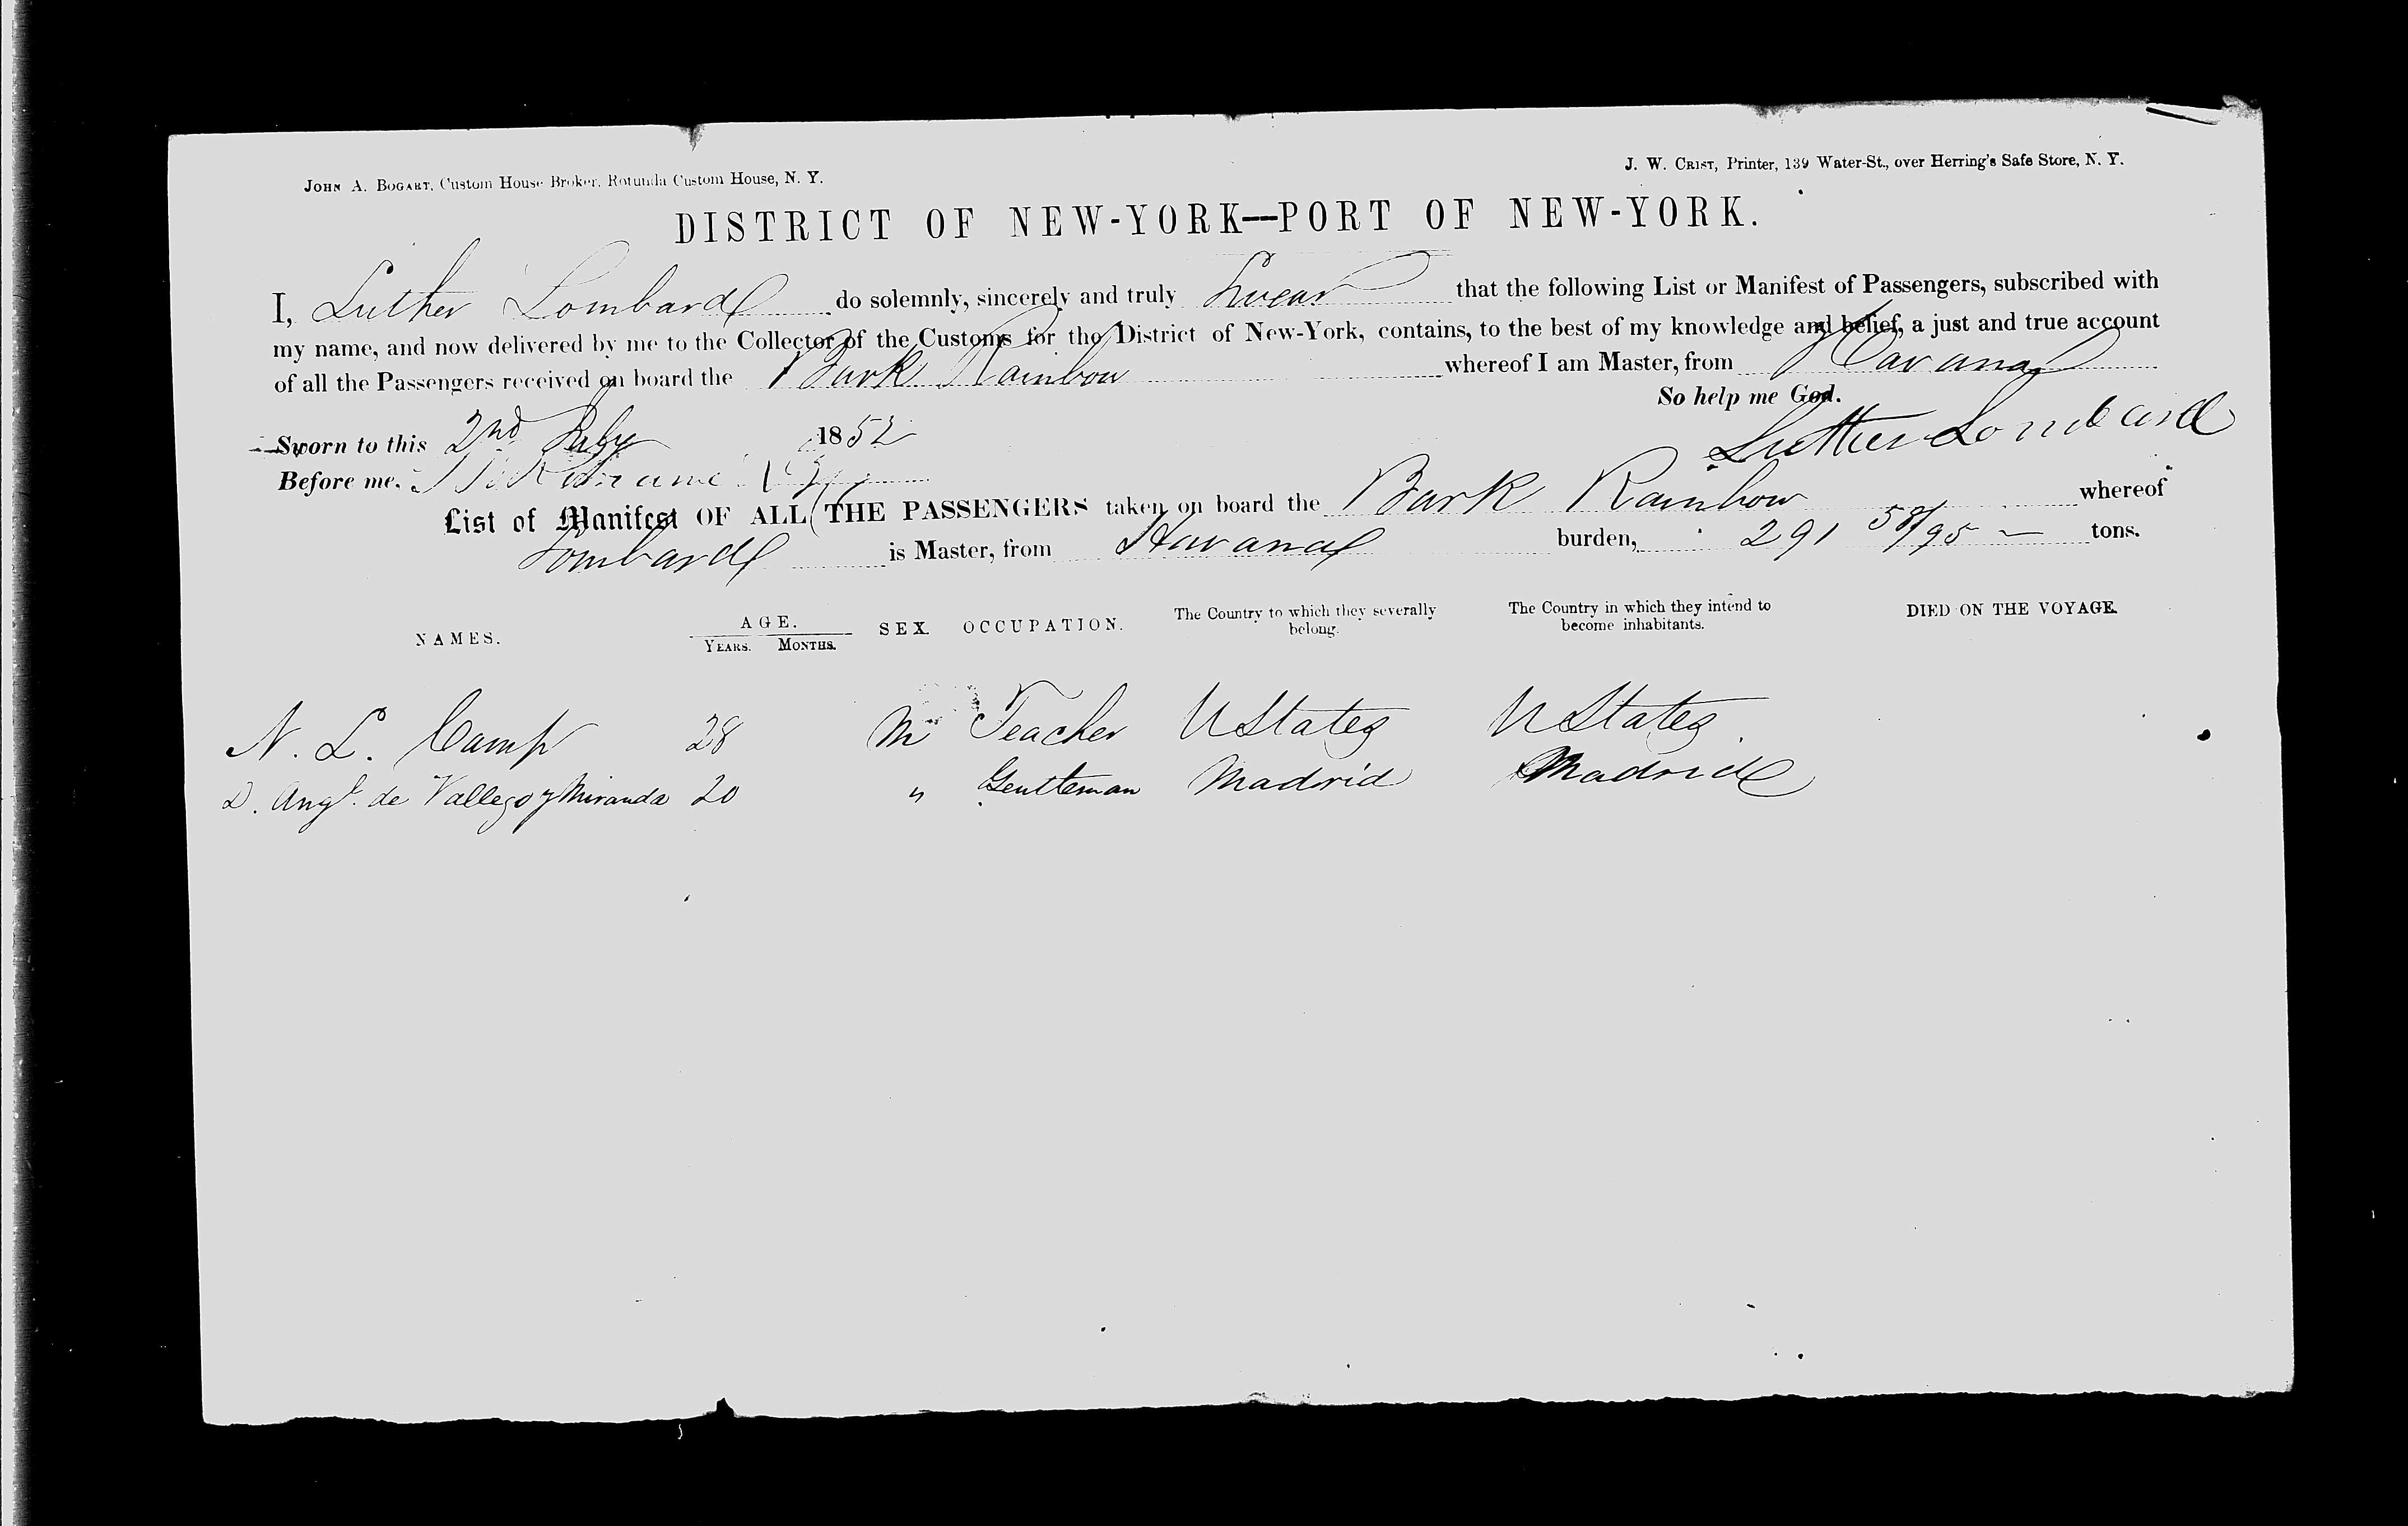 JOHN A. BOGART, Custom House Broker, Rotunda Custom House, N. Y.
J. W. CRIST, Printer, 139 Water-St., over Herring's Safe Store, N. Y.
DISTRICT OF NEW-YORK—PORT OF NEW-YORK.
I, Luther Lombard do solemnly, sincerely and truly Swear that the following List or Manifest of Passengers, subscribed with
my name, and now delivered by me to the Collector of the Customs for the District of New-York, contains, to the best of my knowledge and belief, a just and true account
of all the Passengers received on board the Bark Rainbow whereof I am Master, from Havana
So help me God.
Sworn to this 2nd 1852
Luther Lombard
Before me.
List of Manifest OF ALL THE PASSENGERS taken on board the Bark Rainbow whereof
Lombard is Master, from Havana burden, 291 58/95 tons.
NAMES. AGE. SEX. OCCUPATION. The Country to which they severally belong. The Country in which they intend to become inhabitants. DIED ON THE VOYAGE.
YEARS. MONTHS.
N. L. Camp 28 M Teacher UStates UStates
D. Angl. de Vallejo y Miranda 20 " Gentleman Madrid Madrid